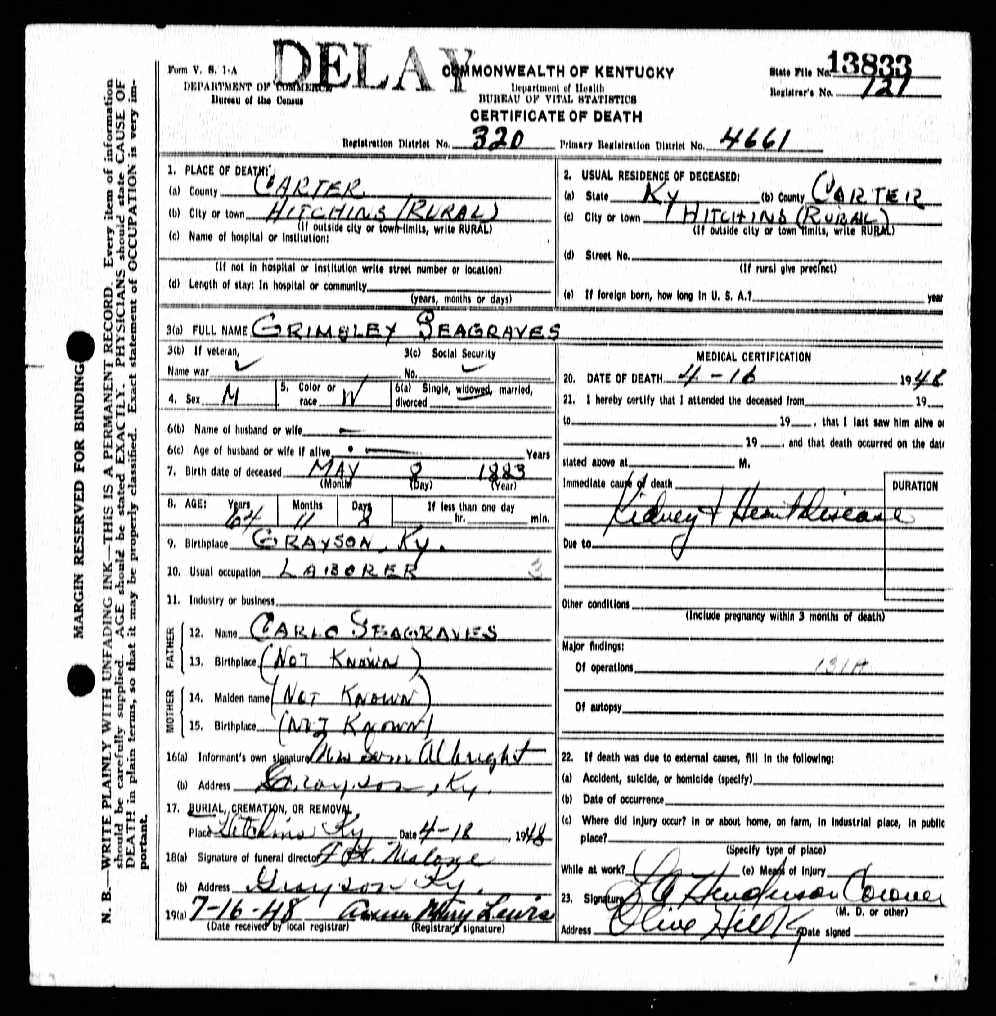 DELAY
Form V. S. 1-A
DEPARTMENT OF COMMERCE
Bureau of the Census
COMMONWEALTH OF KENTUCKY
Department of Health
BUREAU OF VITAL STATISTICS
CERTIFICATE OF DEATH
State File No. 13833
Registrar's No. 121
Registration District No. 320 Primary Registration District No. 4661
MARGIN RESERVED FOR BINDING
N. B.—WRITE PLAINLY WITH UNFADING INK—THIS IS A PERMANENT RECORD. Every item of information
should be carefully supplied. AGE should be stated EXACTLY. PHYSICIANS should state CAUSE OF
DEATH in plain terms, so that it may be properly classified. Exact statement of OCCUPATION is very im-
portant.
1. PLACE OF DEATH:
(a) County CARTER
(b) City or town HITCHINS (RURAL)
(If outside city or town limits, write RURAL)
(c) Name of hospital or institution:
(If not in hospital or institution write street number or location)
(d) Length of stay: In hospital or community
(years, months or days)
2. USUAL RESIDENCE OF DECEASED:
(a) State KY (b) County CARTER
(c) City or town HITCHINS (RURAL)
(If outside city or town limits, write RURAL)
(d) Street No.
(If rural give precinct)
(e) If foreign born, how long in U. S. A.? year
3(a) FULL NAME GRIMSLEY SEAGRAVES
3(b) If veteran,
Name war
3(c) Social Security
No.
4. Sex M
5. Color or race W
6(a) Single, widowed, married, divorced
6(b) Name of husband or wife
6(c) Age of husband or wife if alive Years
7. Birth date of deceased MAY 8 1883
(Month) (Day) (Year)
8. AGE: Years Months Days If less than one day
64 11 8 hr. min.
9. Birthplace GRAYSON, KY.
10. Usual occupation LABORER 3
11. Industry or business
FATHER
12. Name CARLO SEAGRAVES
13. Birthplace (NOT KNOWN)
MOTHER
14. Maiden name (NOT KNOWN)
15. Birthplace (NOT KNOWN)
16(a) Informant's own signature Albright
(b) Address Grayson, Ky.
17. BURIAL, CREMATION, OR REMOVAL
Place Hitchins Ky Date 4-18, 1948
18(a) Signature of funeral director Malone
(b) Address Grayson Ky.
19(a) 7-16-48 Mary Lewis
(Date received by local registrar) (Registrar's signature)
MEDICAL CERTIFICATION
20. DATE OF DEATH 4-16 1948
21. I hereby certify that I attended the deceased from 19
to 19 , that I last saw him alive on
19 , and that death occurred on the date
stated above at M.
Immediate cause of death DURATION
Kidney & Heart Disease
Due to
Other conditions
(Include pregnancy within 3 months of death)
Major findings:
Of operations 131A
Of autopsy
22. If death was due to external causes, fill in the following:
(a) Accident, suicide, or homicide (specify)
(b) Date of occurrence
(c) Where did injury occur? in or about home, on farm, in industrial place, in public
place?
(Specify type of place)
While at work? (e) Means of Injury
23. Signature Henderson Coroner
(M. D. or other)
Address Olive Hill Ky Date signed